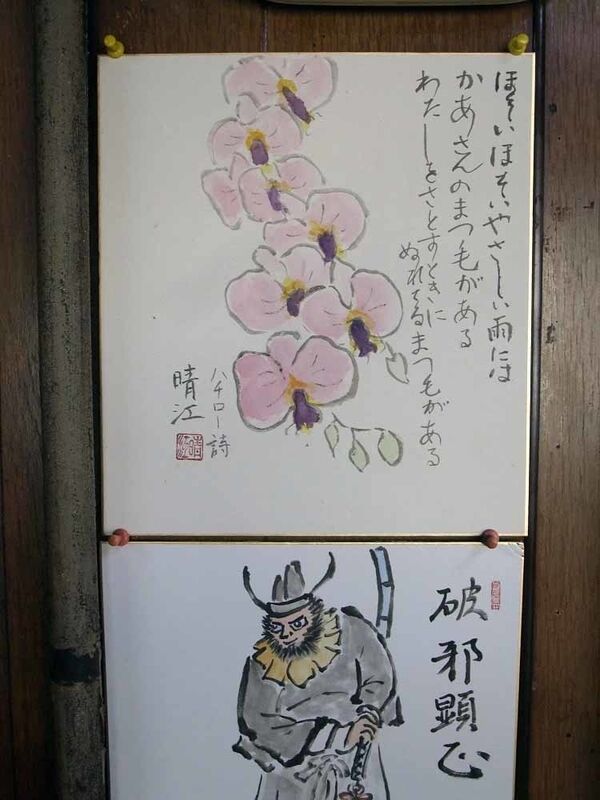 ほそいほそいやさしい雨には
かあさんのまつ毛がある
わたしをさとすときに
ぬれてるまつ毛がある
ハチロー詩
晴江
破邪顕正